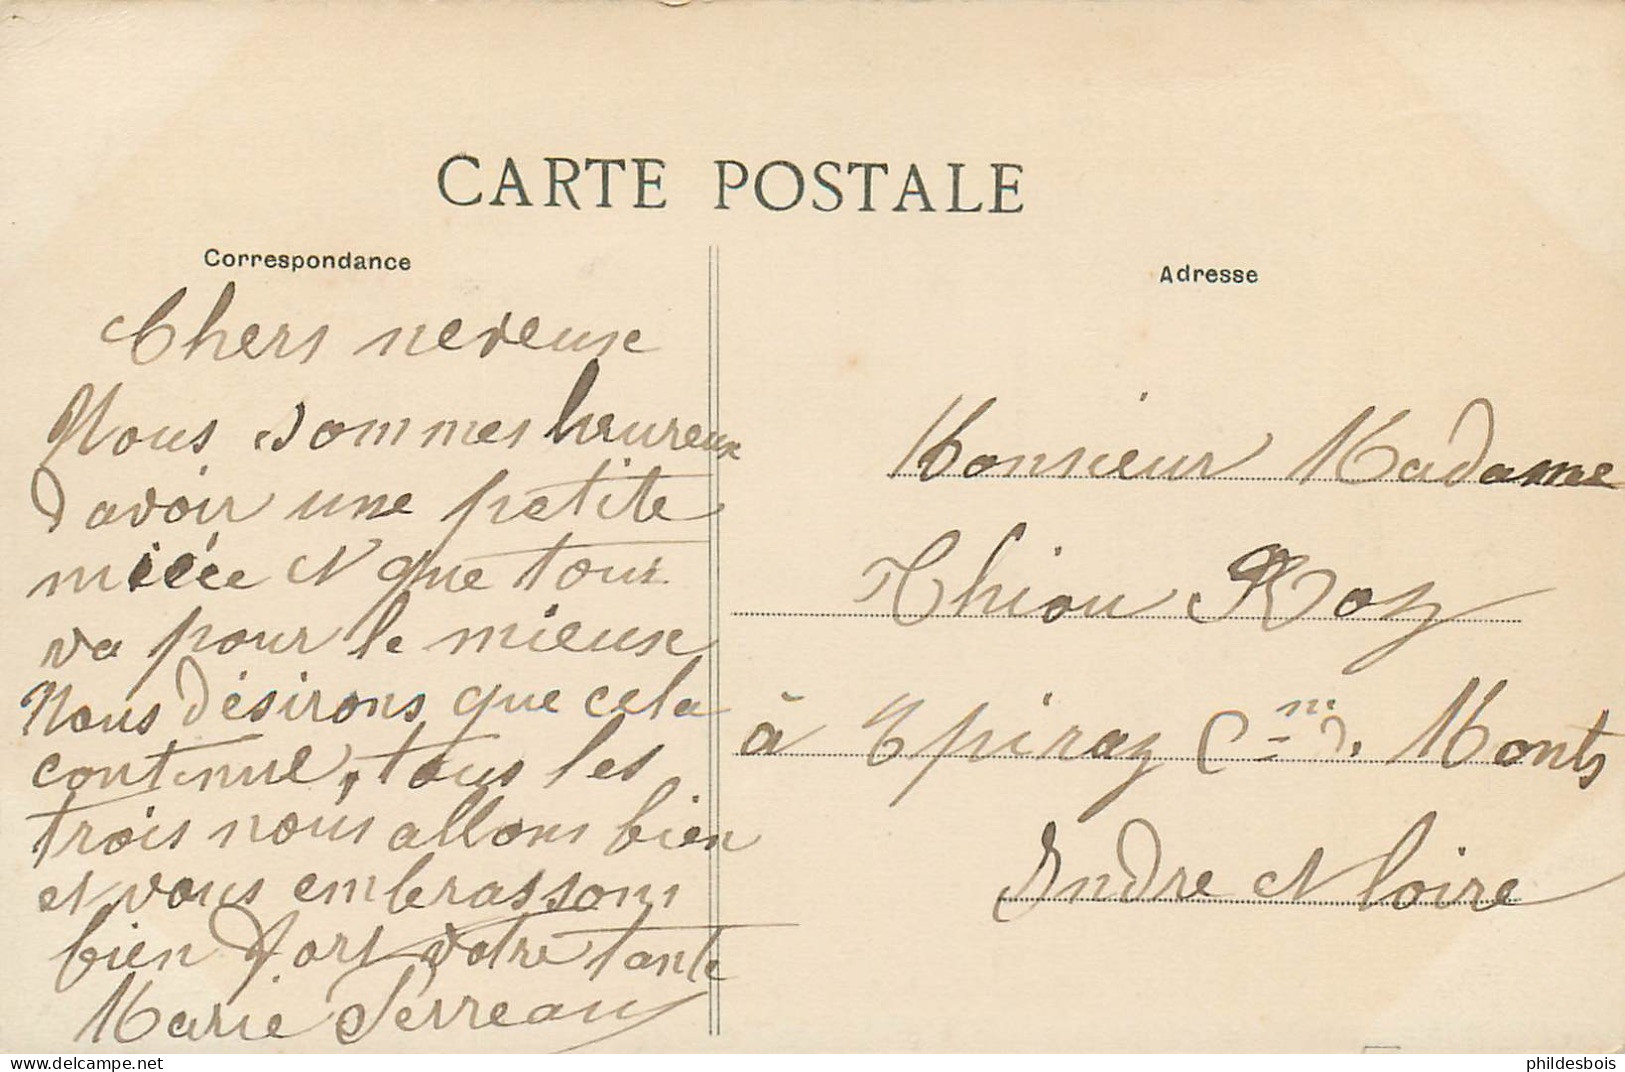 CARTE POSTALE
Correspondance
Chers neveux
Nous sommes heureux
d'avoir une petite
nièce et que tout
va pour le mieux
Nous désirons que cela
continue, tous les
trois nous allons bien
et vous embrassons
bien fort votre tante
Marie Perreau
Adresse
Monsieur Madame
Thiou Roy
à Epiray Cne d. Monts
Indre et Loire
phildesbois